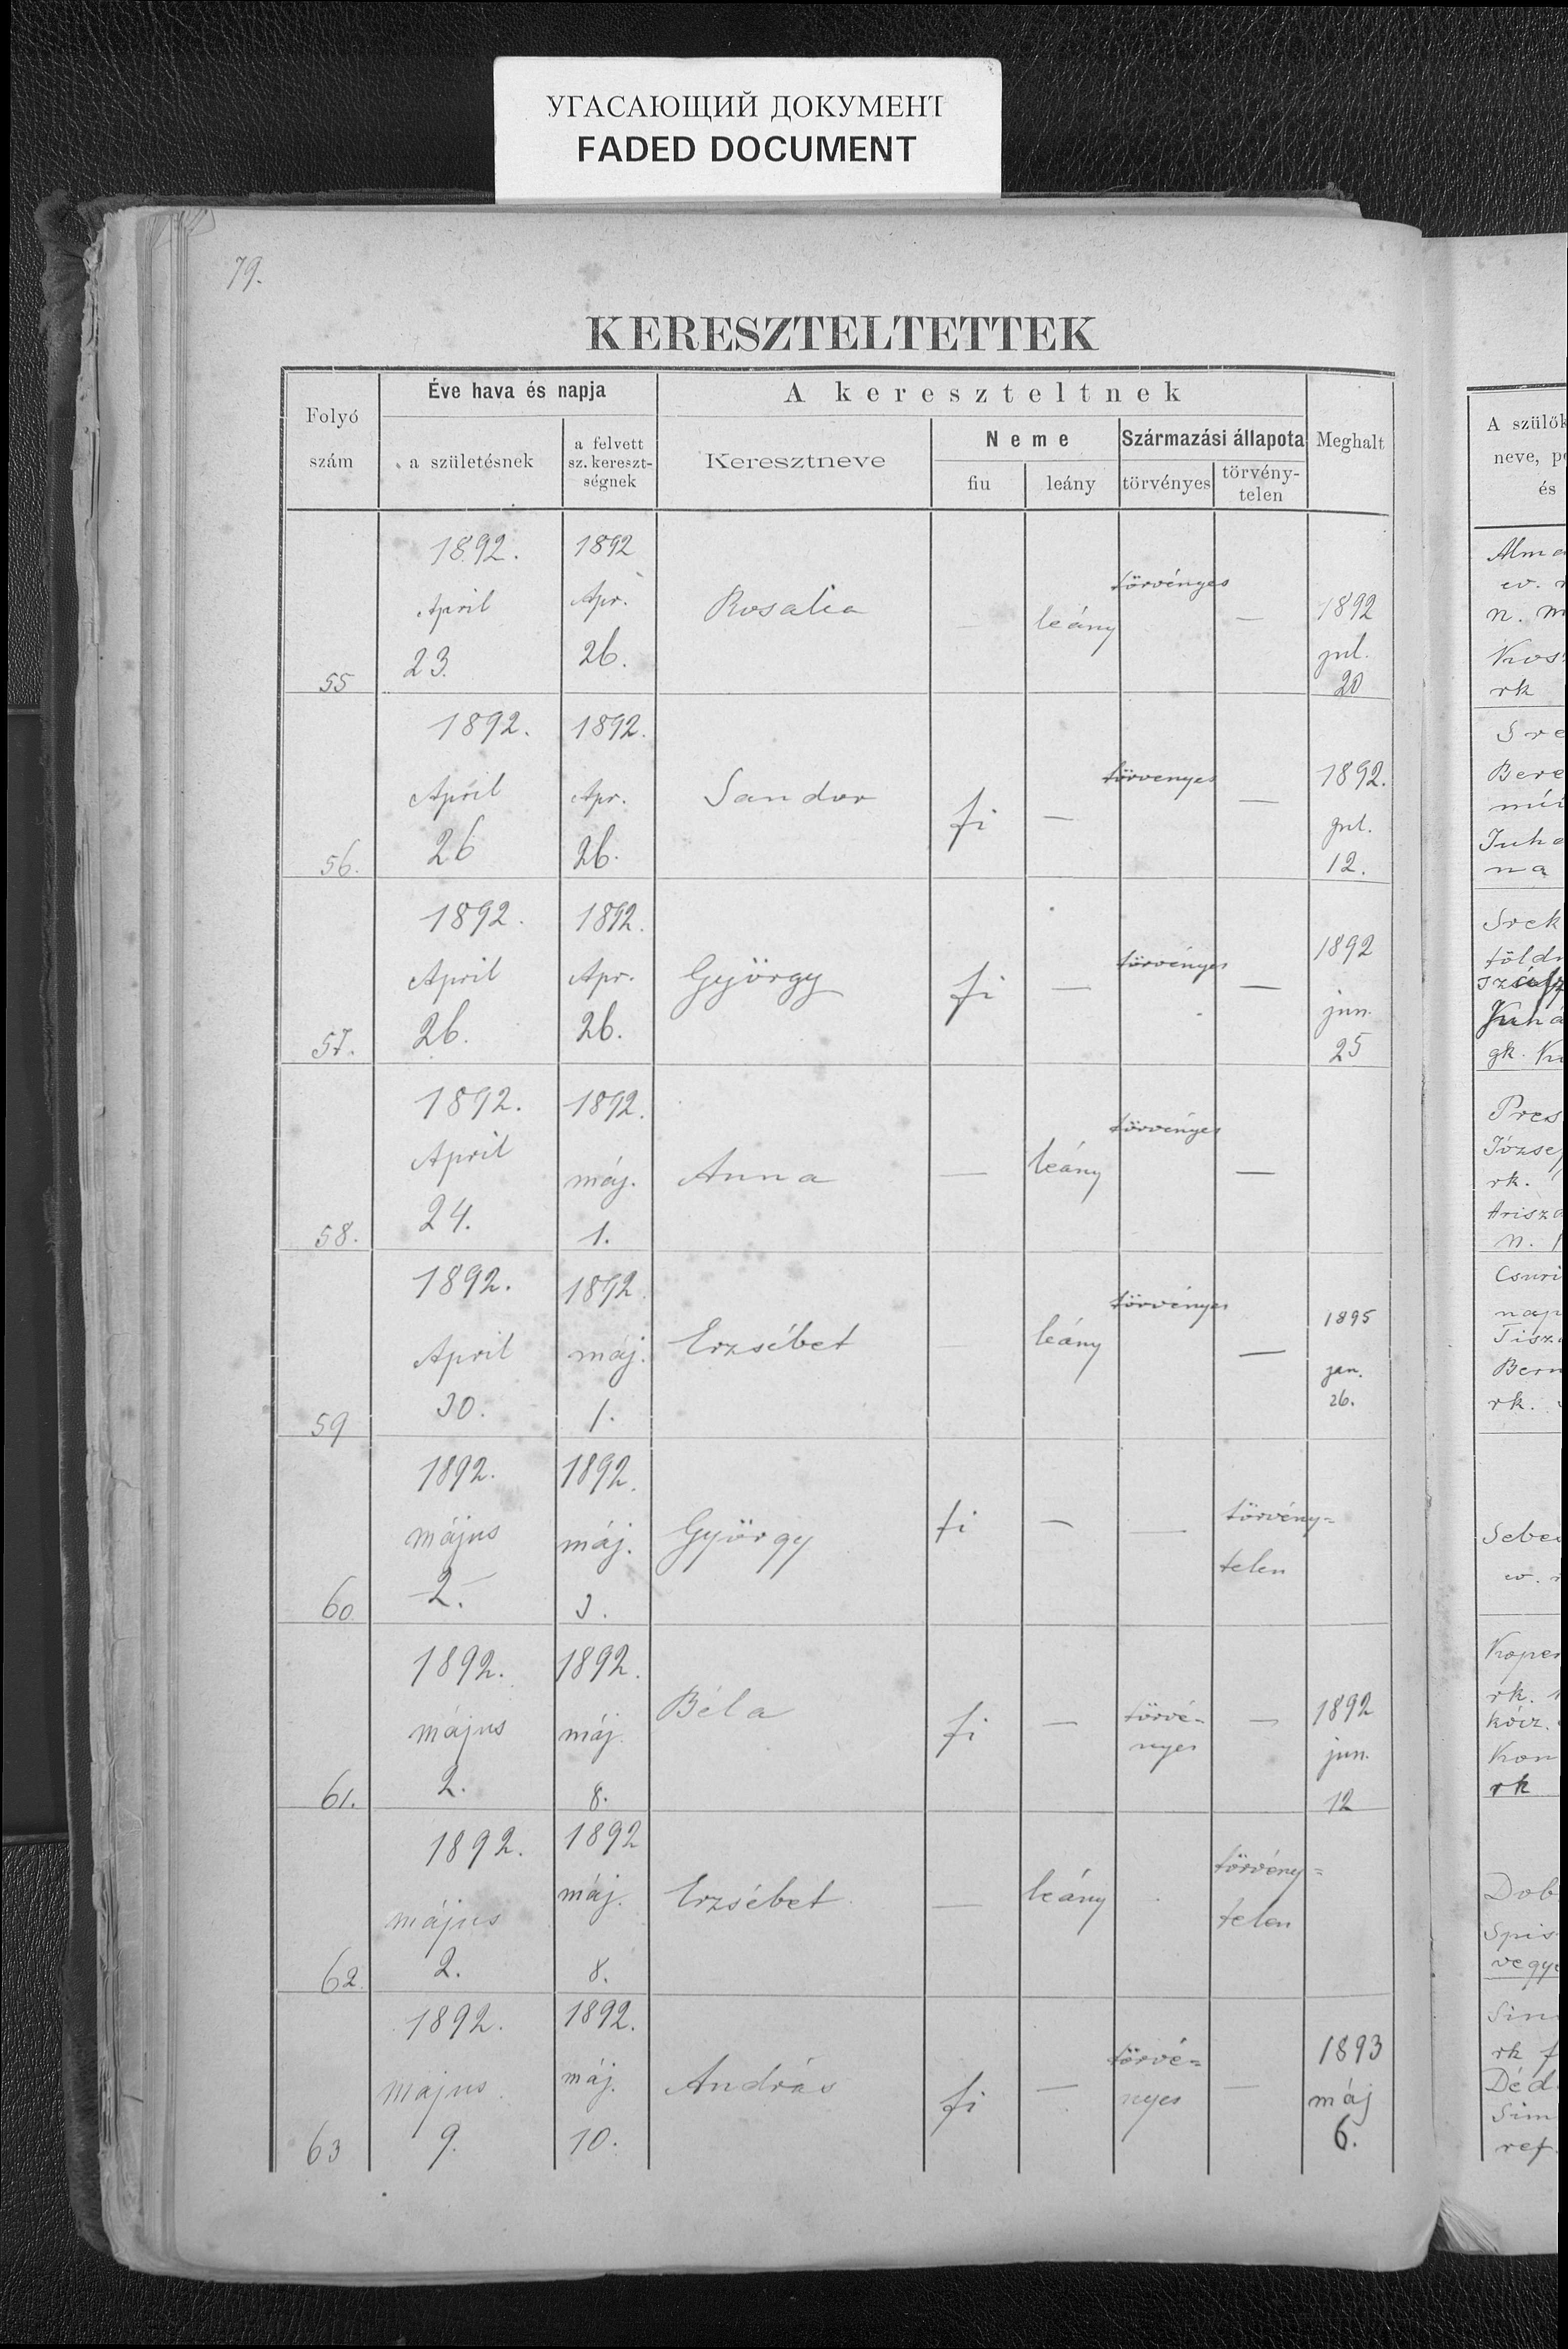 УГАСАЮЩИЙ ДОКУМЕНТ
FADED DOCUMENT
79.
KERESZTELTETTEK
Folyó szám
Éve hava és napja
a születésnek
a felvett sz. kereszt-ségnek
A kereszteltnek
Keresztneve
Neme
fiu
leány
Származási állapota
törvényes
törvény-telen
Meghalt
55 1892. April 23. 1892 Apr. 26. Rosalia — leány törvényes — 1892 jul. 20
56. 1892. April 26 1892. Apr. 26. Sandor fi — törvenyes — 1892. jul. 12.
57. 1892. April 26. 1892. Apr. 26. György fi — törvényes — 1892 jun. 25
58. 1892. April 24. 1892. máj. 1. Anna — leány törvényes —
59 1892. April 30. 1892. máj. 1. Erzsébet — leány törvényes — 1895 jan. 26.
60. 1892. május 2. 1892. máj. 3. György fi — — törvény= telen
61. 1892. május 2. 1892. máj. 8. Béla fi — törvé= nyes — 1892 jun. 12
62. 1892. május 2. 1892 máj. 8. Erzsébet — leány törvény= telen
63 1892. május. 9. 1892. máj. 10. András fi — törvé= nyes — 1893 máj 6.
A szülők
neve, p
és
Alma
ev.
n. m
Kos
rk
Sre
Bere
Juha
na
Srek
földm
Juhá
gk.
Pres
József
rk.
n.
Csuri
nap
Tisza
Bern
rk.
Sebe
ev.
Koper
rk.
Kon
rk
Dob
Spis
vegye
Sim
rk f
Déd
Sim
ref.